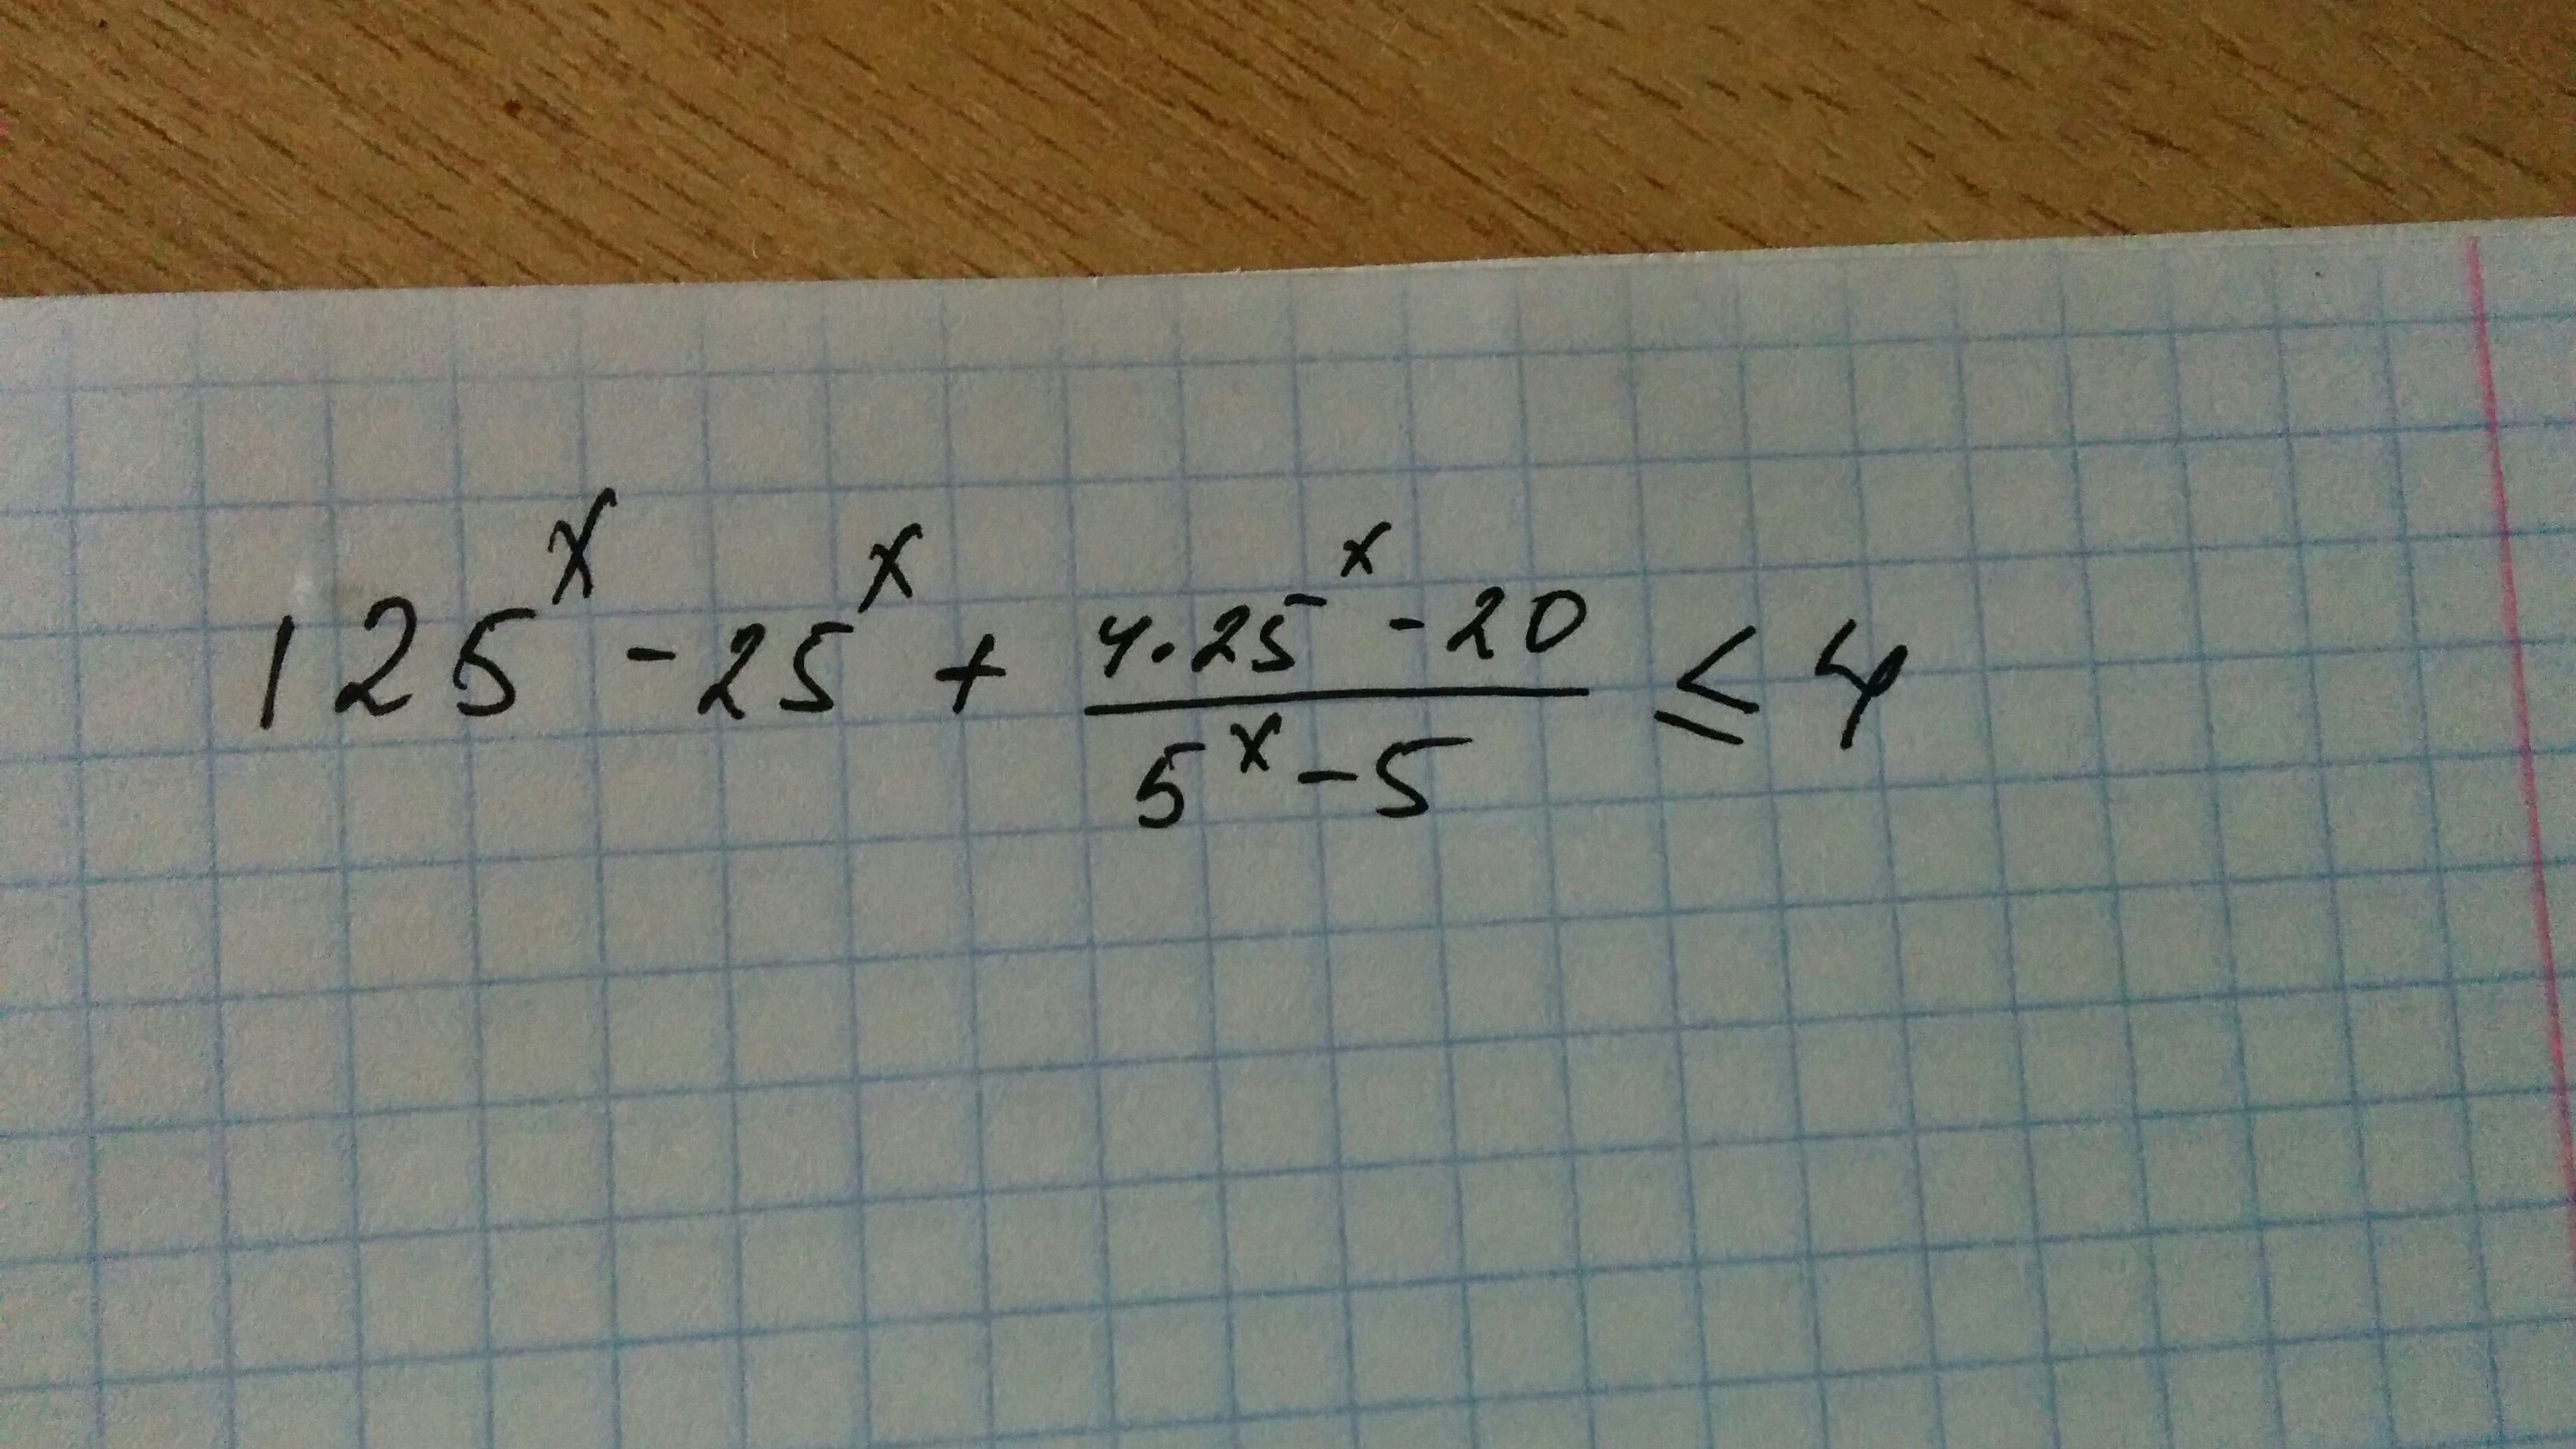 125^x - 25^x + \frac{4·25^x - 20}{5^x - 5} ≤ 4